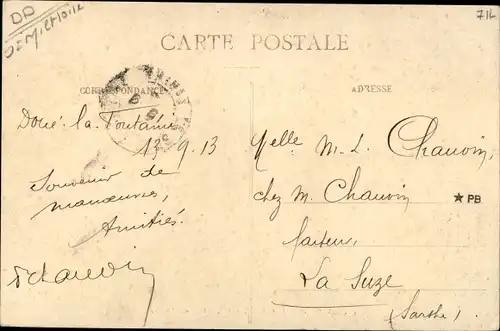 DD
71L
CARTE POSTALE
CORRESPONDANCE
ADRESSE
Doué-la-Fontaine
13-9.13
Souvenir de
manœuvres,
Amitiés.
Chauvin
Melle M. L. Chauvin,
chez M. Chauvin
facteur,
La Suze
(Sarthe)
★ PB